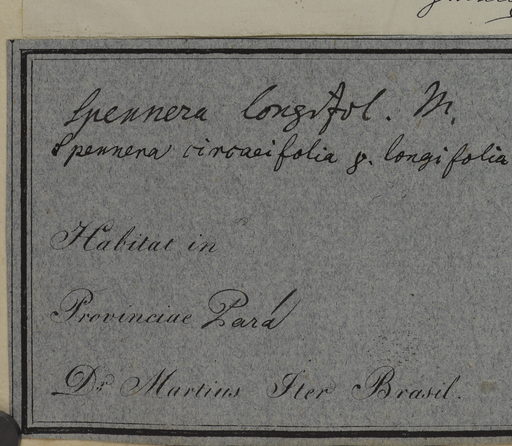 Spennera longifol. M.
Spennera circaeifolia γ. longifolia
Habitat in
Provinciae Pará
Dr. Martius Iter Brasil.